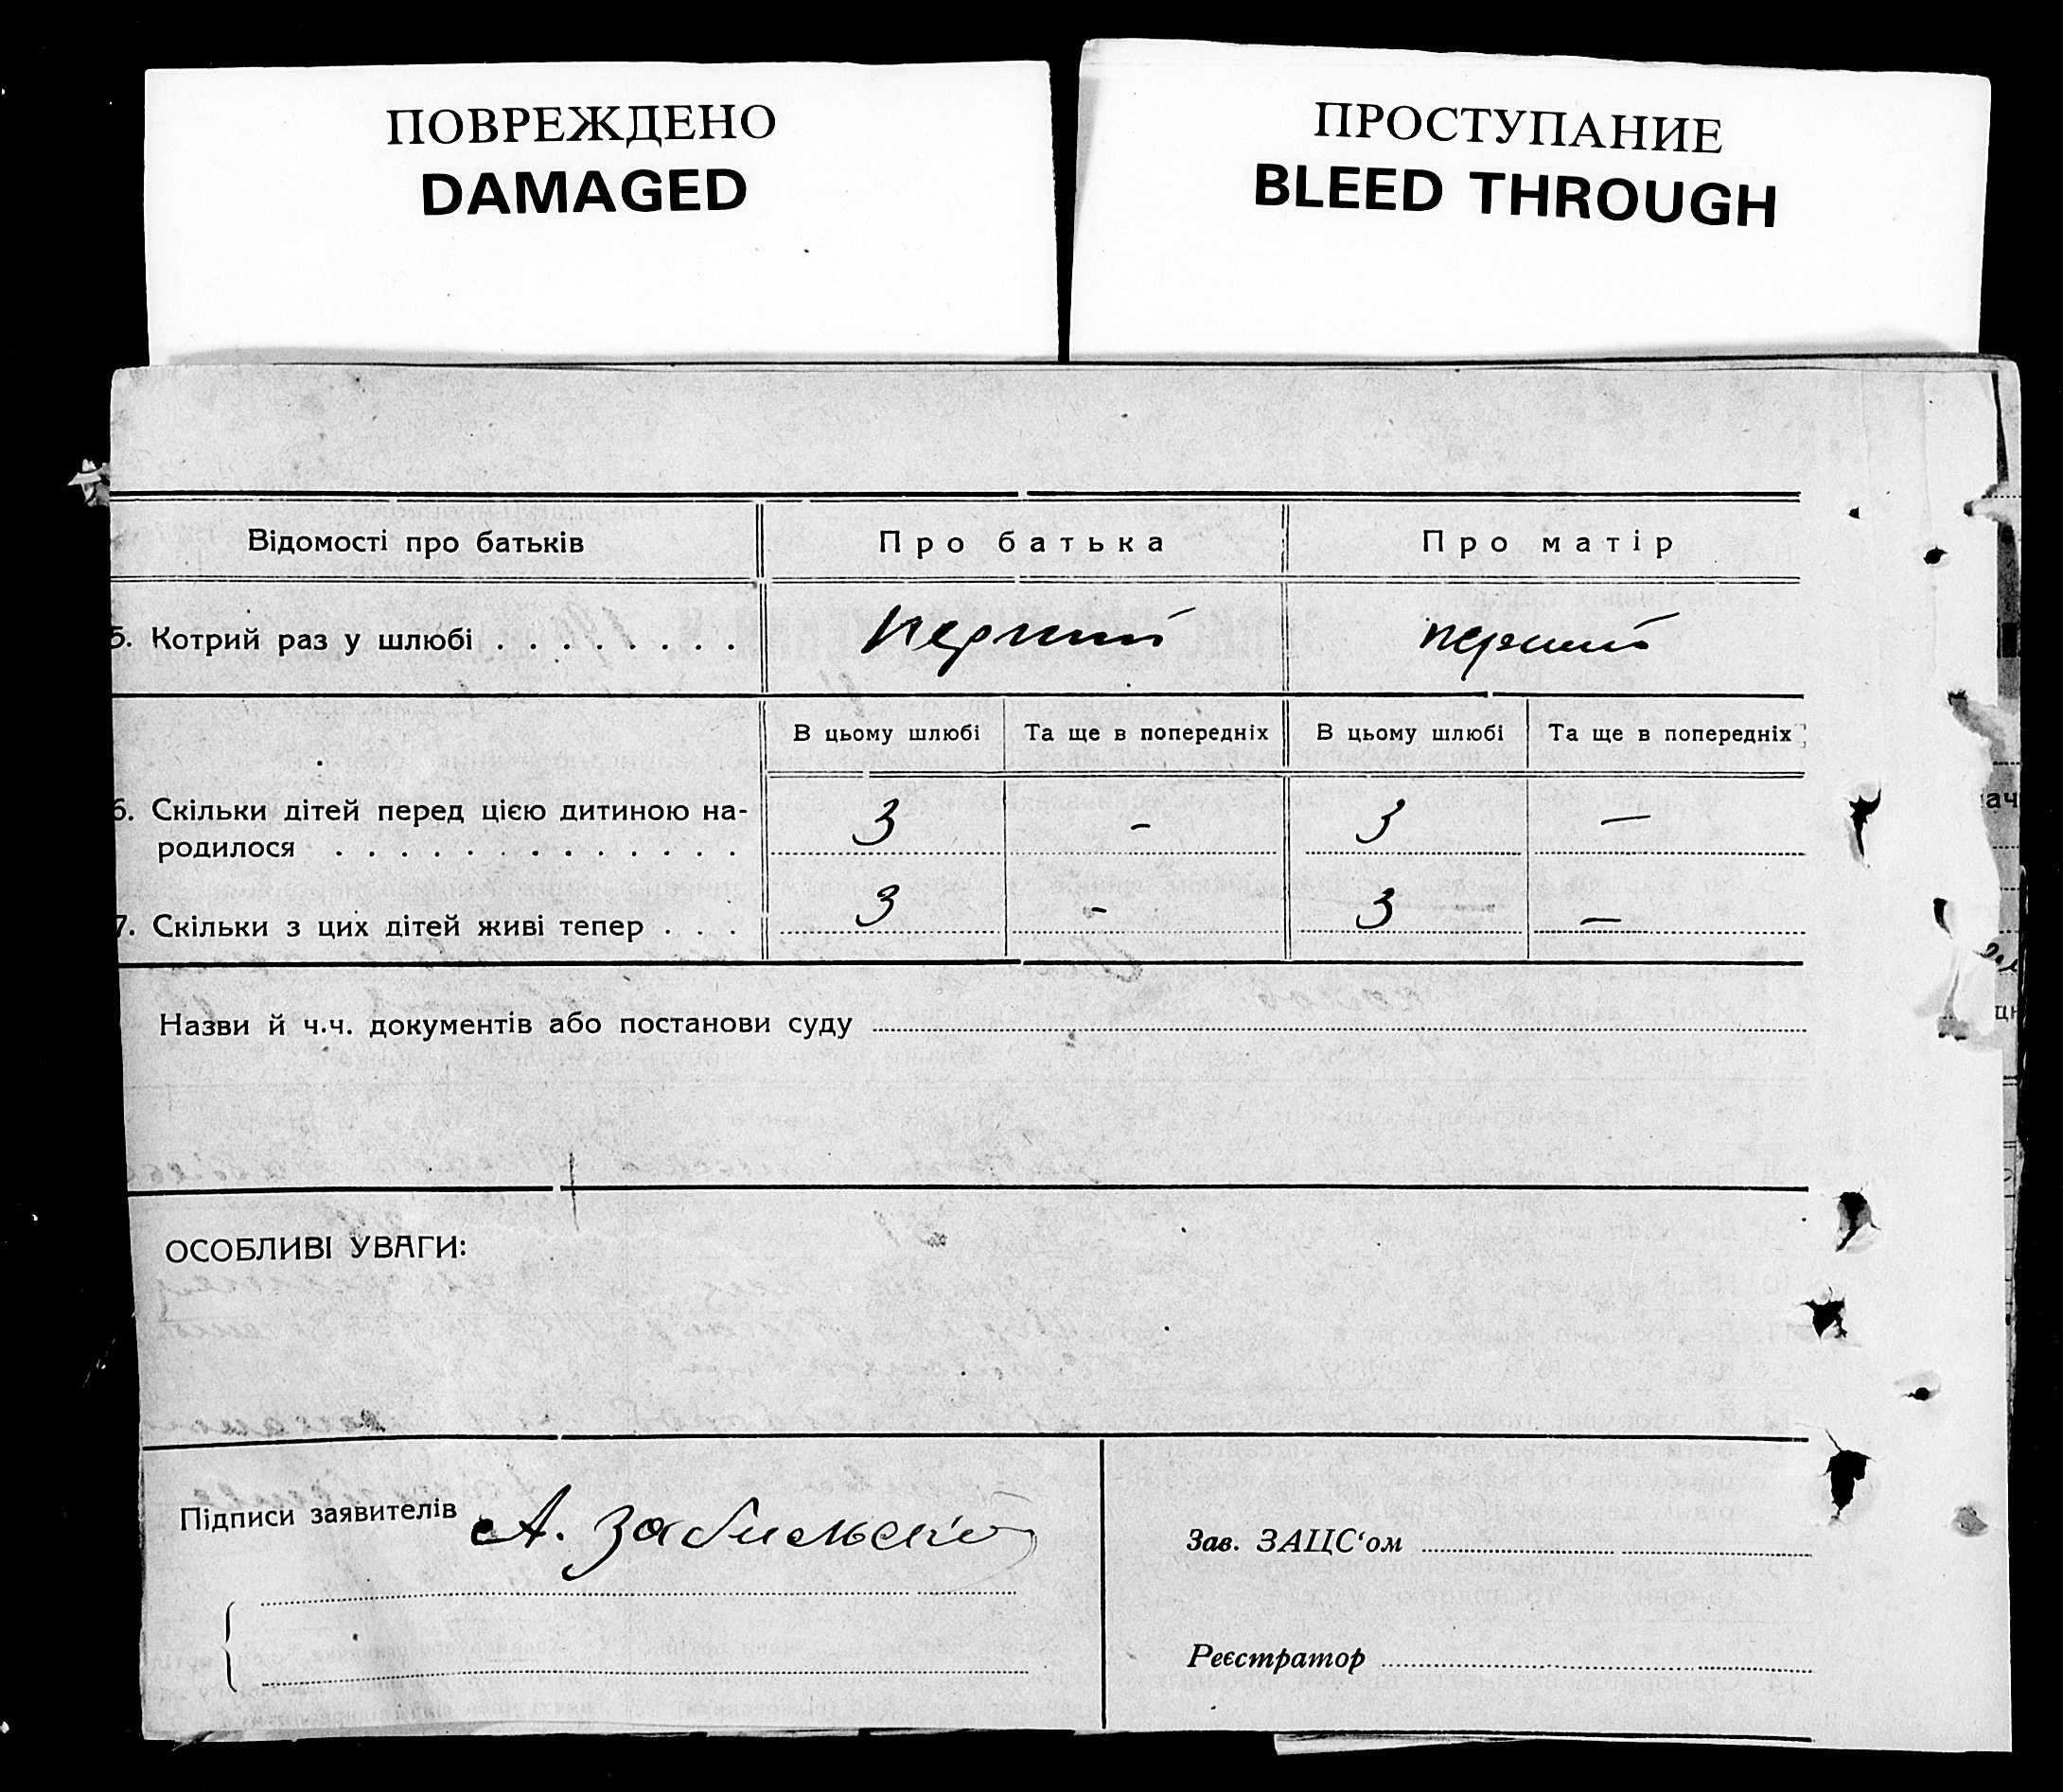 ПОВРЕЖДЕНО
DAMAGED
ПРОСТУПАНИЕ
BLEED THROUGH
Відомості про батьків
Про батька
Про матір
5. Котрий раз у шлюбі . . . . . . . .
первий
первий
В цьому шлюбі
Та ще в попередніх
В цьому шлюбі
Та ще в попередніх
6. Скільки дітей перед цією дитиною на-
родилося . . . . . . . . . . . . .
3
-
3
—
7. Скільки з цих дітей живі тепер . . .
3
-
3
—
Назви й ч.ч. документів або постанови суду
ОСОБЛИВІ УВАГИ:
Підписи заявителів
А.
Зав. ЗАЦС‘ом
Реєстратор